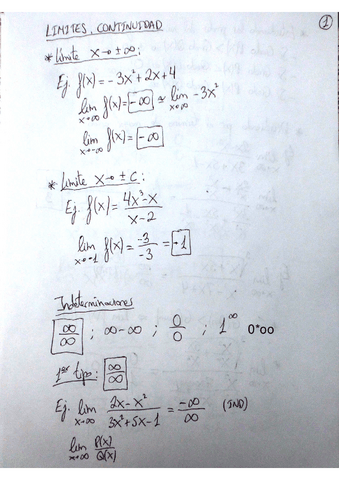 LIMITES, CONTINUIDAD
1
* Límite x→ ± ∞ :
Ej f(x) = - 3x² + 2x + 4
lim x→∞ f(x) = -∞ ≃ lim x→∞ -3x²
lim x→-∞ f(x) = -∞
* Límite x→ ± c :
Ej. f(x) = (4x³ - x)/(x - 2)
lim x→-1 f(x) = -3/-3 = -1
Indeterminaciones
∞/∞ ; ∞-∞ ; 0/0 ; 1^∞ 0*oo
1er tipo : ∞/∞
Ej. lim x→∞ (2x - x²)/(3x² + 5x - 1) = -∞/∞ (IND)
lim x→∞ P(x)/Q(x)